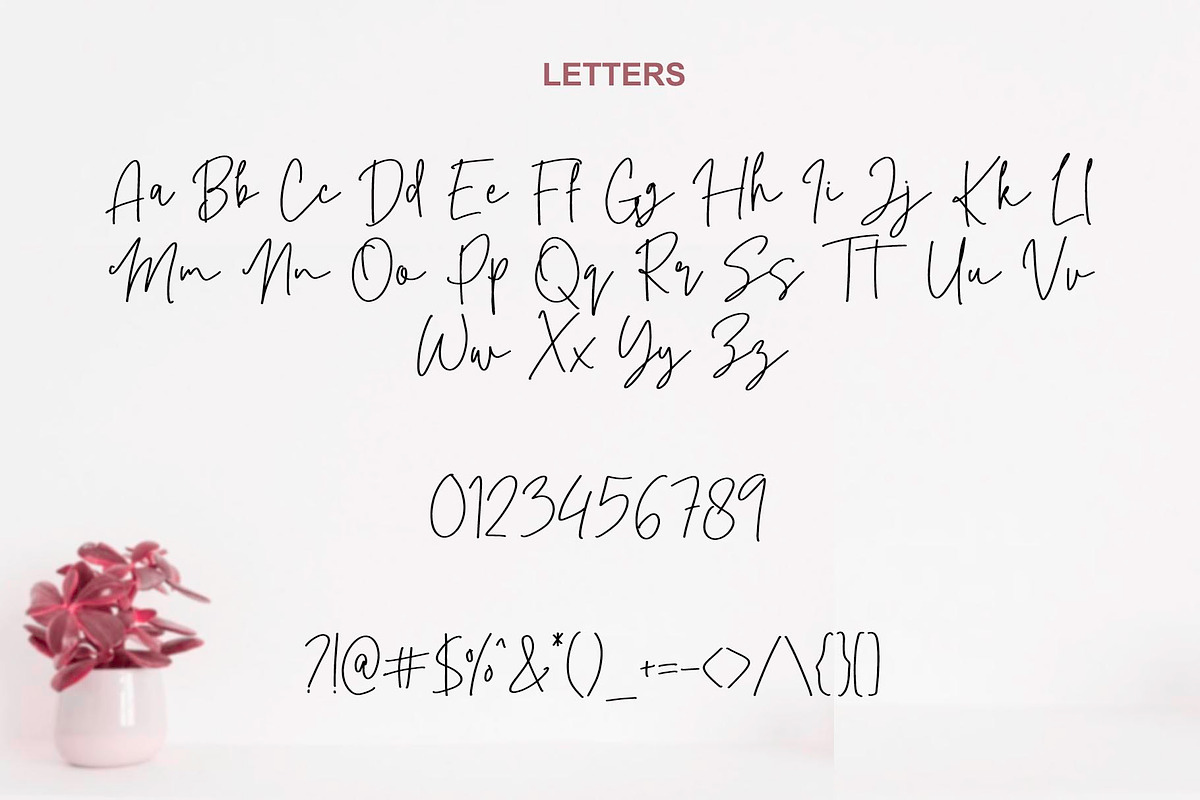 LETTERS
Aa Bb Cc Dd Ee Ff Gg Hh Ii Jj Kk Ll
Mm Nn Oo Pp Qq Rr Ss Tt Uu Vv
Ww Xx Yy Zz
0123456789
?!@#$%^&*()_+=-<>/\{}[]